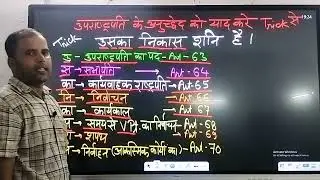 उपराष्ट्रपति के अनुच्छेद को याद करे Trick से
Trick
उसका निकास शनि है।
उ- उपराष्ट्रपति का पद- Art-63
स- सभापति → Art-64
का- कार्यवाहक राष्ट्रपति → Art-65
नि- निर्वाचन → Art-66
का- कार्यकाल → Art 67
समय से V.Pr. का निर्वाचन- Art-68
शपथ Art- 69
निर्वाचन (आकस्मिक → Art-70